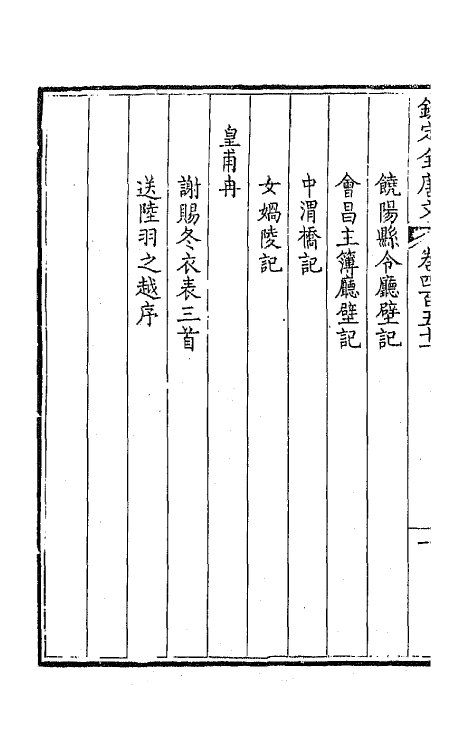 欽定全唐文 卷四百五十一
饒陽縣令廳壁記
會昌主簿廳壁記
中渭橋記
女媧陵記
皇甫冉
謝賜冬衣表三首
送陸羽之越序
一